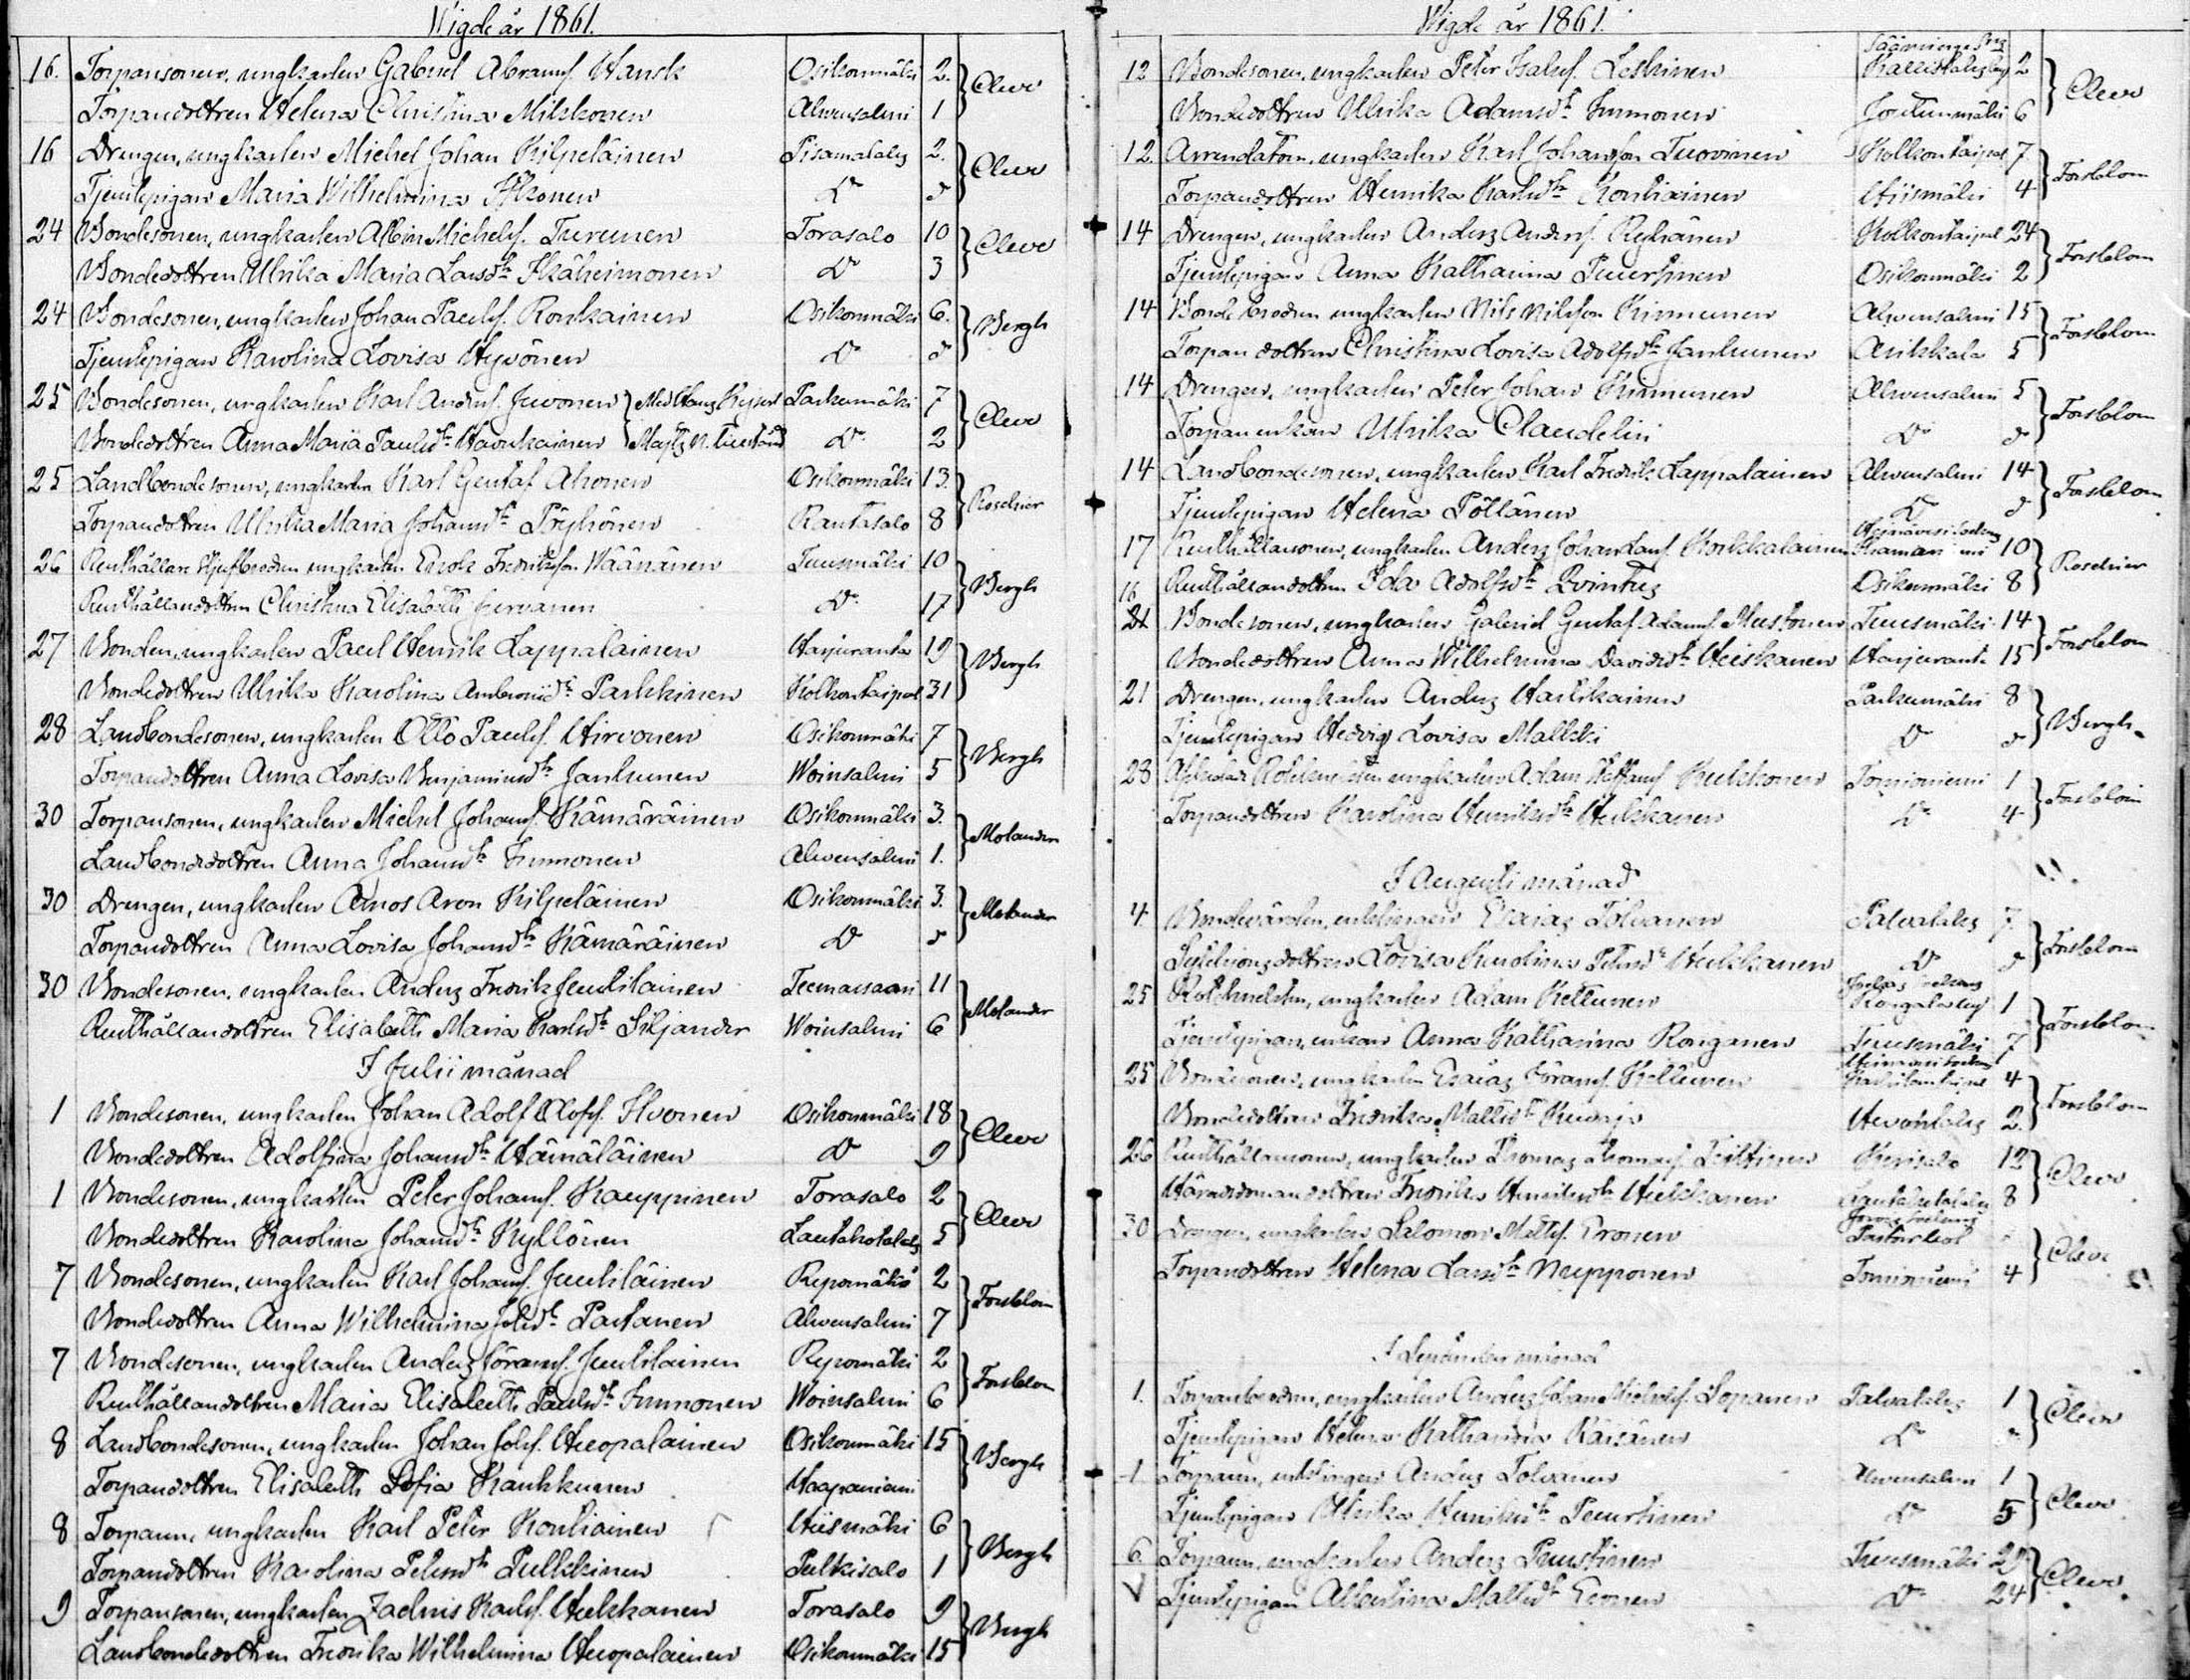 Wigde år 1861.
16. Torpansonen, ungkarlen Gabriel Abramss. Hansk Osikonmäki 2. Cleve
Torpandottren Helena Christina Mikkonen Ahvensalmi 1
16 Drengen, ungkarlen Michel Johan Kilpeläinen Pisamalaks 2. Cleve
Tjenstepigan Maria Wilhelmina Ikonen Do d
24 Bondesonen, ungkarlen Albin Michelss. Turunen Torasalo 10 Cleve
Bondedottren Ulrika Maria Larsdr Ikäheimonen Do 3
24 Bondesonen, ungkarlen Johan Paulss. Ronkainen Osikonmäki 6. Bergh
Tjenstepigan Karolina Lovisa Hyvönen Do d
25 Bondesonen, ungkarlen Karl Andrss. Juvonen Med Hans Kejserl Tarkumäki 7 Cleve
Bondedottren Anna Maria Paulsdr Havukainen Majts n. Do 2
25 Landbondesonen, ungkarlen Karl Gustaf Ahonen Osikonmäki 13. Roschier
Torpandottren Ulrika Maria Johansdr Pöyhönen Rantasalo 8
26 Rusthållare ungkarlen Enok Fredriksson Wäänänen Tuusmäki 10 Bergh
Rusthållaredottren Christina Elisabeth Do 17
27 Bonden, ungkarlen Paul Henrik Lappalainen Harjuranta 19 Bergh
Bondedottren Ulrika Karolina Ambrosiidr Parkkinen Kolkontaipal 31
28 Landbondesonen, ungkarlen Otto Paulss. Hirvonen Osikonmäki 7 Bergh
Torpandottren Anna Lovisa Benjaminsdr Janhunen Woinsalmi 5
30 Torpansonen, ungkarlen Michel Johanss. Kämäräinen Osikonmäki 3. Molander
Landbondedottren Anna Johansdr Immonen Ahvensalmi 1.
30 Drengen, ungkarlen Amos Aron Kilpeläinen Osikonmäki 3. Molander
Torpandottren Anna Lovisa Johansdr Kämäräinen Do d
30 Bondesonen, ungkarlen Anders Fredrik Juutilainen Teemassaari 11 Molander
Rusthållaredottren Elisabeth Maria Karlsdr Siljander Woinsalmi 6
I Julii månad
1 Bondesonen, ungkarlen Johan Adolf Olofss. Ihvonen Osikonmäki 18 Cleve
Bondedottren Adolfina Johansdr Hämäläinen Do 9
1 Bondesonen, ungkarlen Peter Johanss. Kauppinen Torasalo 2 Cleve
Bondedottren Karolina Johansdr Kyllönen Lautakotalaks 5
7 Bondesonen, ungkarlen Karl Johanss. Juutilainen Repomäki 2 Forsblom
Bondedottren Anna Wilhelmina Johsdr Partanen Ahvensalmi 7
7 Bondesonen, ungkarlen Anders Göranss. Juutilainen Repomäki 2 Forsblom
Rusthållandottren Maria Elisabeth Paulsdr Immonen Woinsalmi 6
8 Landbondesonen, ungkarlen Johan Johss. Huopalainen Osikonmäki 15 Bergh
Torpandottren Elisabeth Sofia Kaukkunen Haapaniemi
8 Torparen, ungkarlen Karl Peter Kontiainen Hiismäki 6 Bergh
Torpandottren Karolina Petersdr Pulkkinen Pulkisalo 1
9 Torpansonen, ungkarlen Zadnis Karlss. Hukkanen Torasalo 9 Bergh
Landbondedottren Fredrika Wilhelmina Huopalainen Osikonmäki 15
Wigde år 1861.
Sääminge Kallislaks by
12 Bondesonen, ungkarlen Peter Isakss. Leskinen 2 Cleve
Bondedottren Ulrika Adamsdr Immonen Joutenmäki 6
12. Arrendatorn, ungkarlen Karl Johansson Tuovinen Kolkontaipal 7 Forsblom
Torpandottren Henrika Karlsdr Kontiainen Hiismäki 4
14 Drengen, ungkarlen Anders Andrss. Reyhänen Kolkontaipal 24 Forsblom
Tjenstepigan Anna Katharina Puurtinen Osikonmäki 2
14 Bondebrodren ungkarlen Nils Nilsson Kinnunen Ahvensalmi 15 Forsblom
Torpandottren Christina Lovisa Adolfsdr Janhunen Asikkala 5
14 Drengen, ungkarlen Peter Johan Kinnunen Ahvensalmi 5 Forsblom
Torpareenkan Ulrika Claudelin Do d
14 Landbondesonen, ungkarlen Karl Fredrik Lappalainen Ahvensalmi 14 Forsblom
Tjenstepigan Helena Pöllänen Do d
17 Rusthållaresonen, ungkarlen Anders Korkkalainen 10 Roschier
16 Rusthållandottren Ida Adolfsdr Osikonmäki 8
21 Bondesonen, ungkarlen Gabriel Gustaf Adamss. Mustonen Tuusmäki 14 Forsblom
Bondedottren Anna Wilhelmina Davidsdr Heiskanen Harjuranta 15
21 Drengen, ungkarlen Anders Hartikainen Tarkumäki 8 Bergh.
Tjenstepigan Hedvig Lovisa Do d
28 ungkarlen Adam Staffanss. Kukkonen Tomioniemi 1 Forsblom
Torpandottren Karolina Henriksdr Hukkanen Do 4
I Augusti månad
4. Bondevärden, enklingen Esaias Tolvanen Palvalaks 7. Forsblom
Lovisa Karolina Petersdr Hukkanen Do d
25 ungkarlen Adam Kettunen 1 Forsblom
Tjenstepigan, enkan Anna Katharina Ronganen Tuusmäki 7
25 Bondesonen, ungkarlen Esaias Göranss. Kettunen 4 Forsblom
Bondedottren Fredrika Mattsdr Kuvaja Hevonlaks 2.
26 Rusthållaresonen, ungkarlen Thomas Thomass. Kerisalo 12 Cleve
Häradsdomaredottren Fredrika Henriksdr Hukkanen Lautakotalaks 8
30 Drengen, ungkarlen Salomon Mattss. Eronen Cleve
Torpandottren Helena Larsdr Nupponen Tomioniemi 4
I September månad
1. Torparebrodren, ungkarlen Anders Johan Michelss. Sopanen Palvalaks 1 Cleve
Tjenstepigan Helena Katharina Räisänen Do
1 Torparen, enklingen Anders Tolvanen Ahvensalmi 1 Cleve
Tjenstepigan Ulrika Henriksdr Puurtinen Do 5
6 Torparen, ungkarlen Anders Puustinen Tuusmäki Cleve
Tjenstepigan Albertina Mattsdr Eronen Do 24